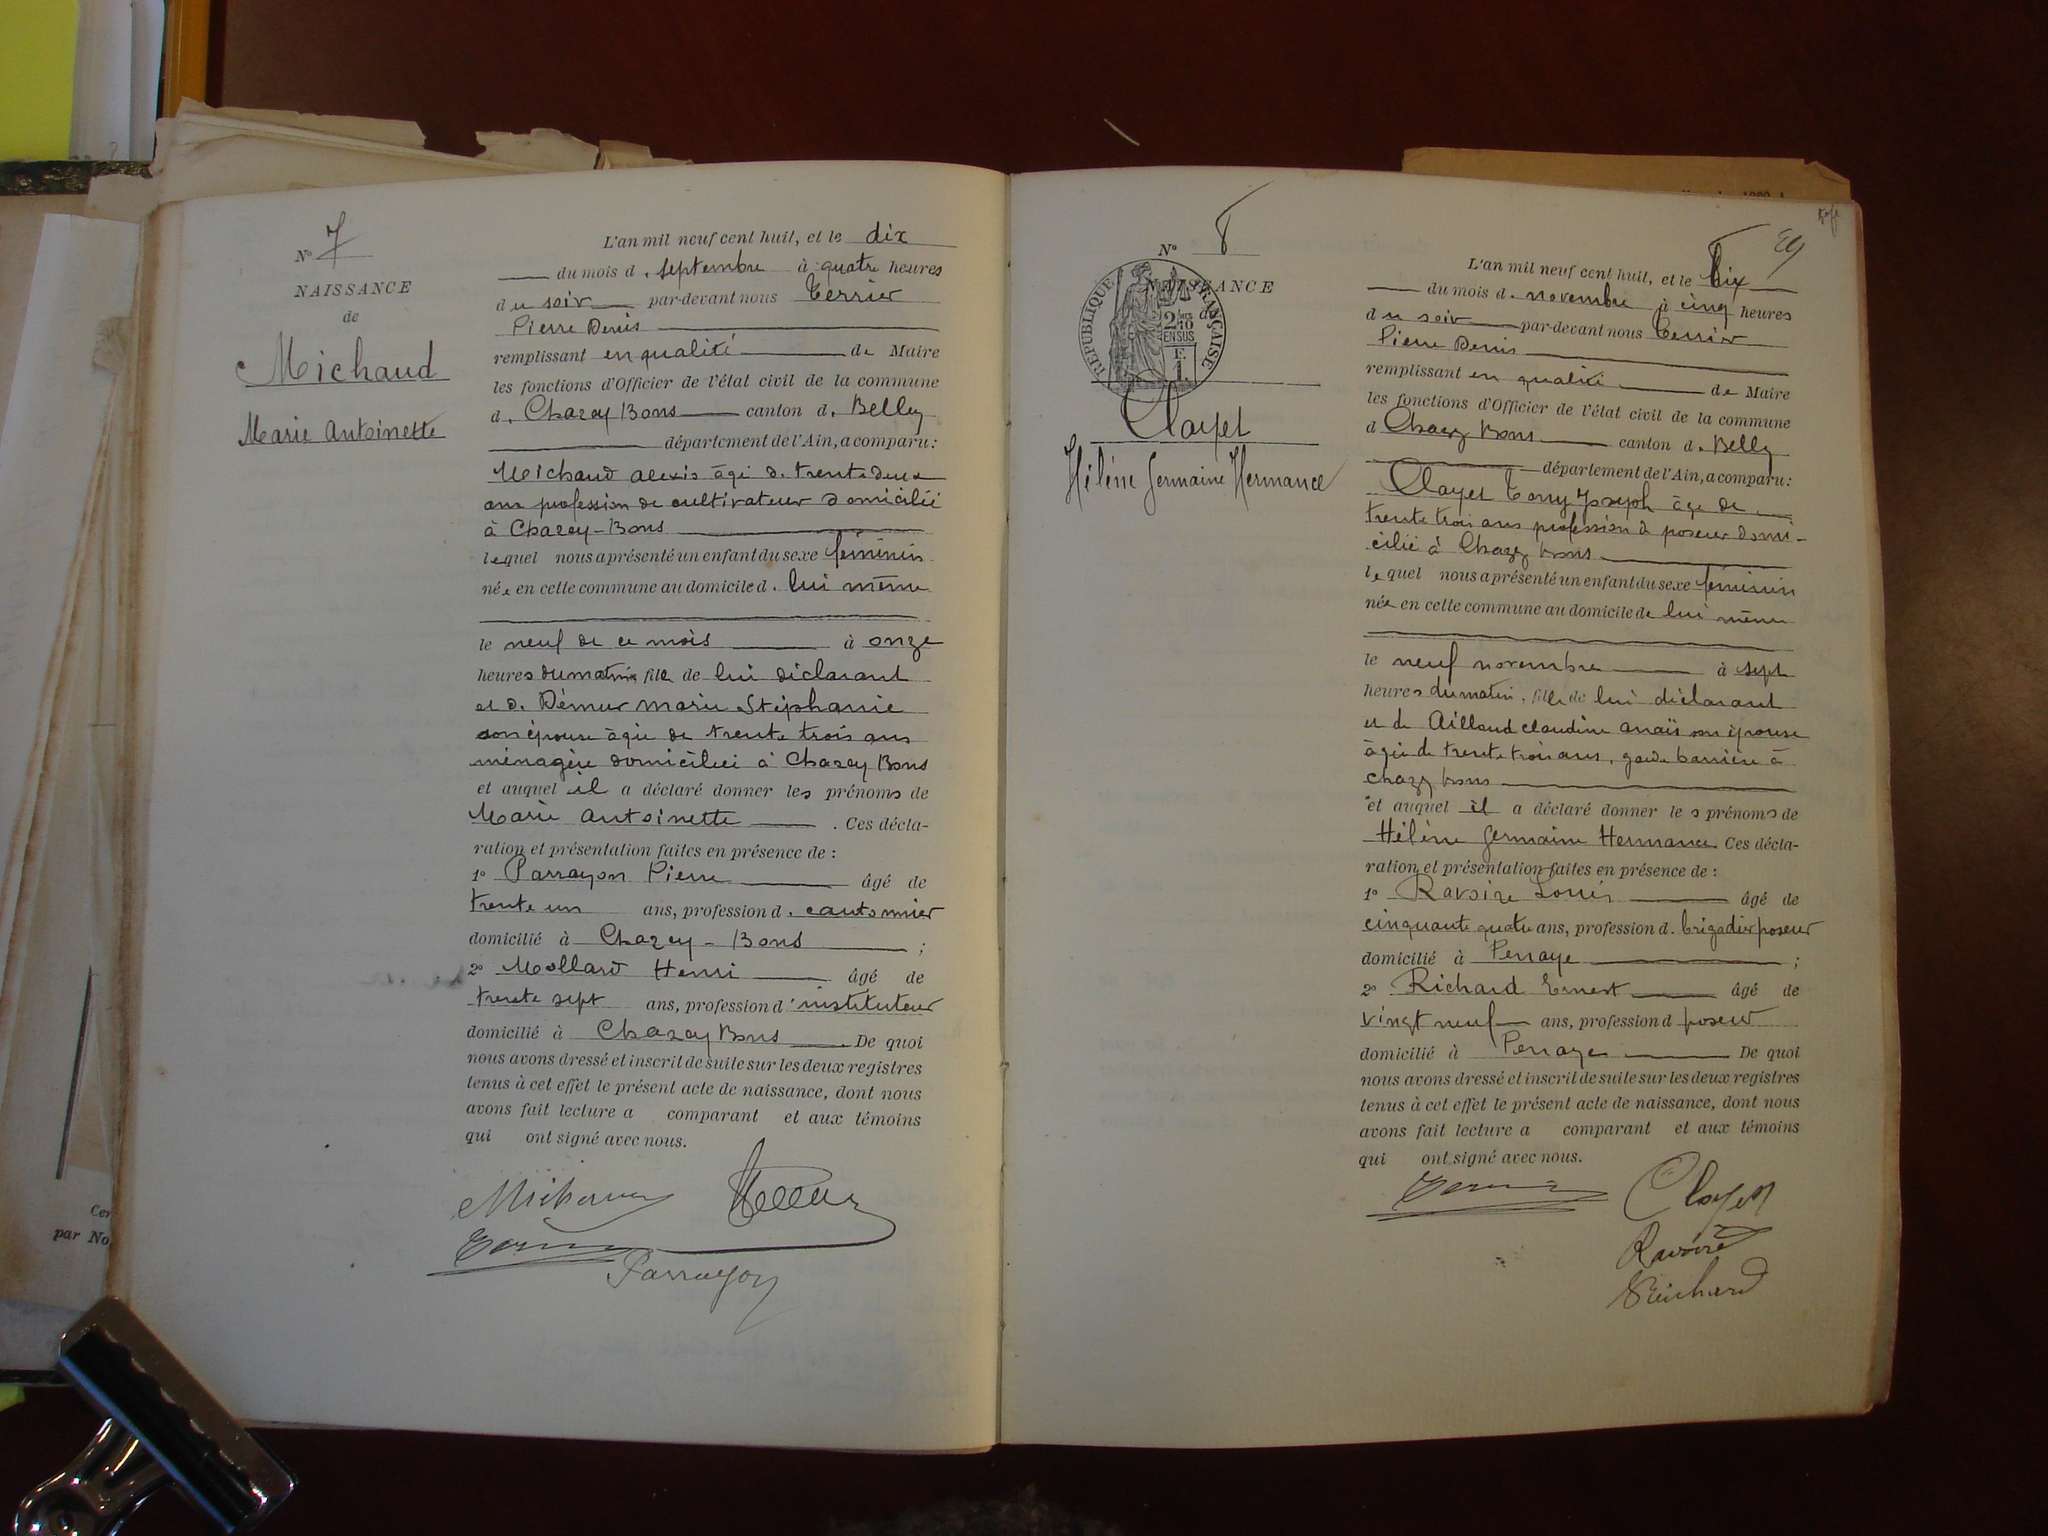 N° 7
NAISSANCE
de
Michaud
Marie Antoinette
L'an mil neuf cent huit, et le dix
du mois d. septembre à quatre heures
du soir par-devant nous Terrier
Pierre Denis
remplissant en qualité de Maire
les fonctions d'Officier de l'état civil de la commune
d. Chazey Bons canton d. Belley
département de l'Ain, a comparu :
Michaud Alexis âgé de trente deux
ans profession de cultivateur domicilié
à Chazey-Bons
lequel nous a présenté un enfant du sexe féminin
née en cette commune au domicile d. lui même
le neuf de ce mois à onze
heures du matin fille de lui déclarant
et d. Démur Marie Stéphanie
son épouse âgée de trente trois ans
ménagère domiciliée à Chazey Bons
et auquel il a déclaré donner les prénoms de
Marie Antoinette . Ces décla-
ration et présentation faites en présence de :
1° Parrayon Pierre âgé de
trente un ans, profession d. cantonnier
domicilié à Chazey-Bons ;
2° Mollard Henri âgé de
trente sept ans, profession d'instituteur
domicilié à Chazey Bons De quoi
nous avons dressé et inscrit de suite sur les deux registres
tenus à cet effet le présent acte de naissance, dont nous
avons fait lecture a comparant et aux témoins
qui ont signé avec nous.
Michaud
Terrier
Parrayon
Cer
par No
29
N° 8
NAISSANCE
de
RÉPUBLIQUE FRANÇAISE
2/10
EN SUS
F.
1
Clayet
Hélène Germaine Hermance
L'an mil neuf cent huit, et le dix
du mois d. novembre à cinq heures
du soir par-devant nous Terrier
Pierre Denis
remplissant en qualité de Maire
les fonctions d'Officier de l'état civil de la commune
d Chazey Bons canton d. Belley
département de l'Ain, a comparu :
Clayet Joseph âgé de
trente trois ans profession d poseur domi-
cilié à Chazey Bons
lequel nous a présenté un enfant du sexe féminin
née en cette commune au domicile de lui même
le neuf novembre à sept
heures du matin, fille de lui déclarant
et de Aillaud Claudine Anaïs son épouse
âgée de trente trois ans, garde barrière à
Chazey Bons
et auquel il a déclaré donner les prénoms de
Hélène Germaine Hermance. Ces décla-
ration et présentation faites en présence de :
1° Ravoire Louis âgé de
cinquante quatre ans, profession d. brigadier poseur
domicilié à Perraye ;
2° Richard Ernest âgé de
vingt neuf ans, profession d poseur
domicilié à Perraye De quoi
nous avons dressé et inscrit de suite sur les deux registres
tenus à cet effet le présent acte de naissance, dont nous
avons fait lecture a comparant et aux témoins
qui ont signé avec nous.
Terrier Clayet
Ravoire
Richard